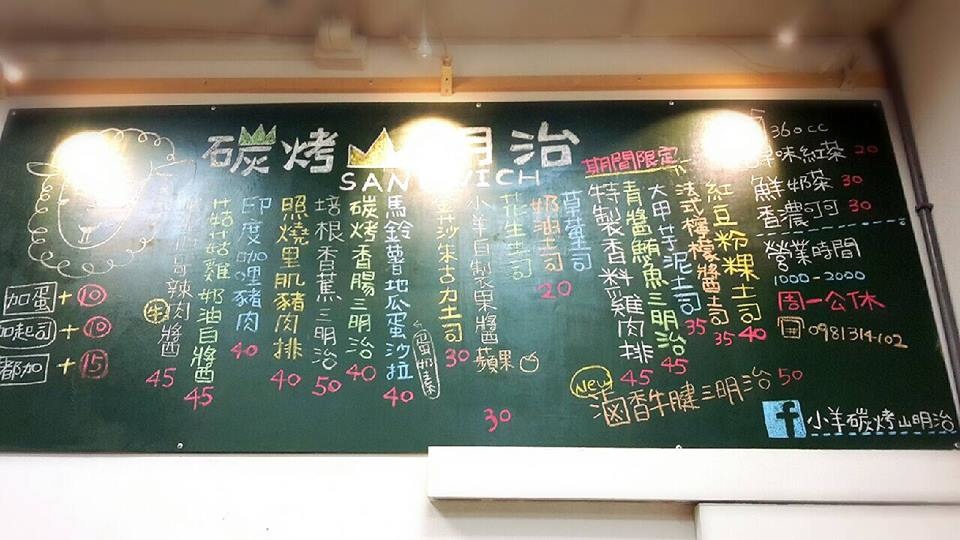 碳烤山明治
SANDWICH
期間限定
360cc
味紅茶 20
鮮奶茶 30
香濃可可 30
營業時間
1000-2000
周一公休
0981314102
紅豆粉粿土司 40
法式檸檬醬土司 35
大甲芋泥土司 35
青醬鯛魚三明治 45
特製香料雞肉排 45
New
滷香牛腱三明治 50
草莓土司
奶油土司 20
花生土司
小羊自製果醬 蘋果 30
莎朱古力土司 30
馬鈴薯地瓜蛋沙拉 40
蛋奶素
碳烤香腸三明治 40
培根香蕉三明治 50
照燒里肌豬肉排 40
印度咖哩豬肉 40
菇菇雞奶油白醬 45
哥辣肉醬 45
牛
加蛋+10
加起司+10
都加+15
f 小羊碳烤山明治